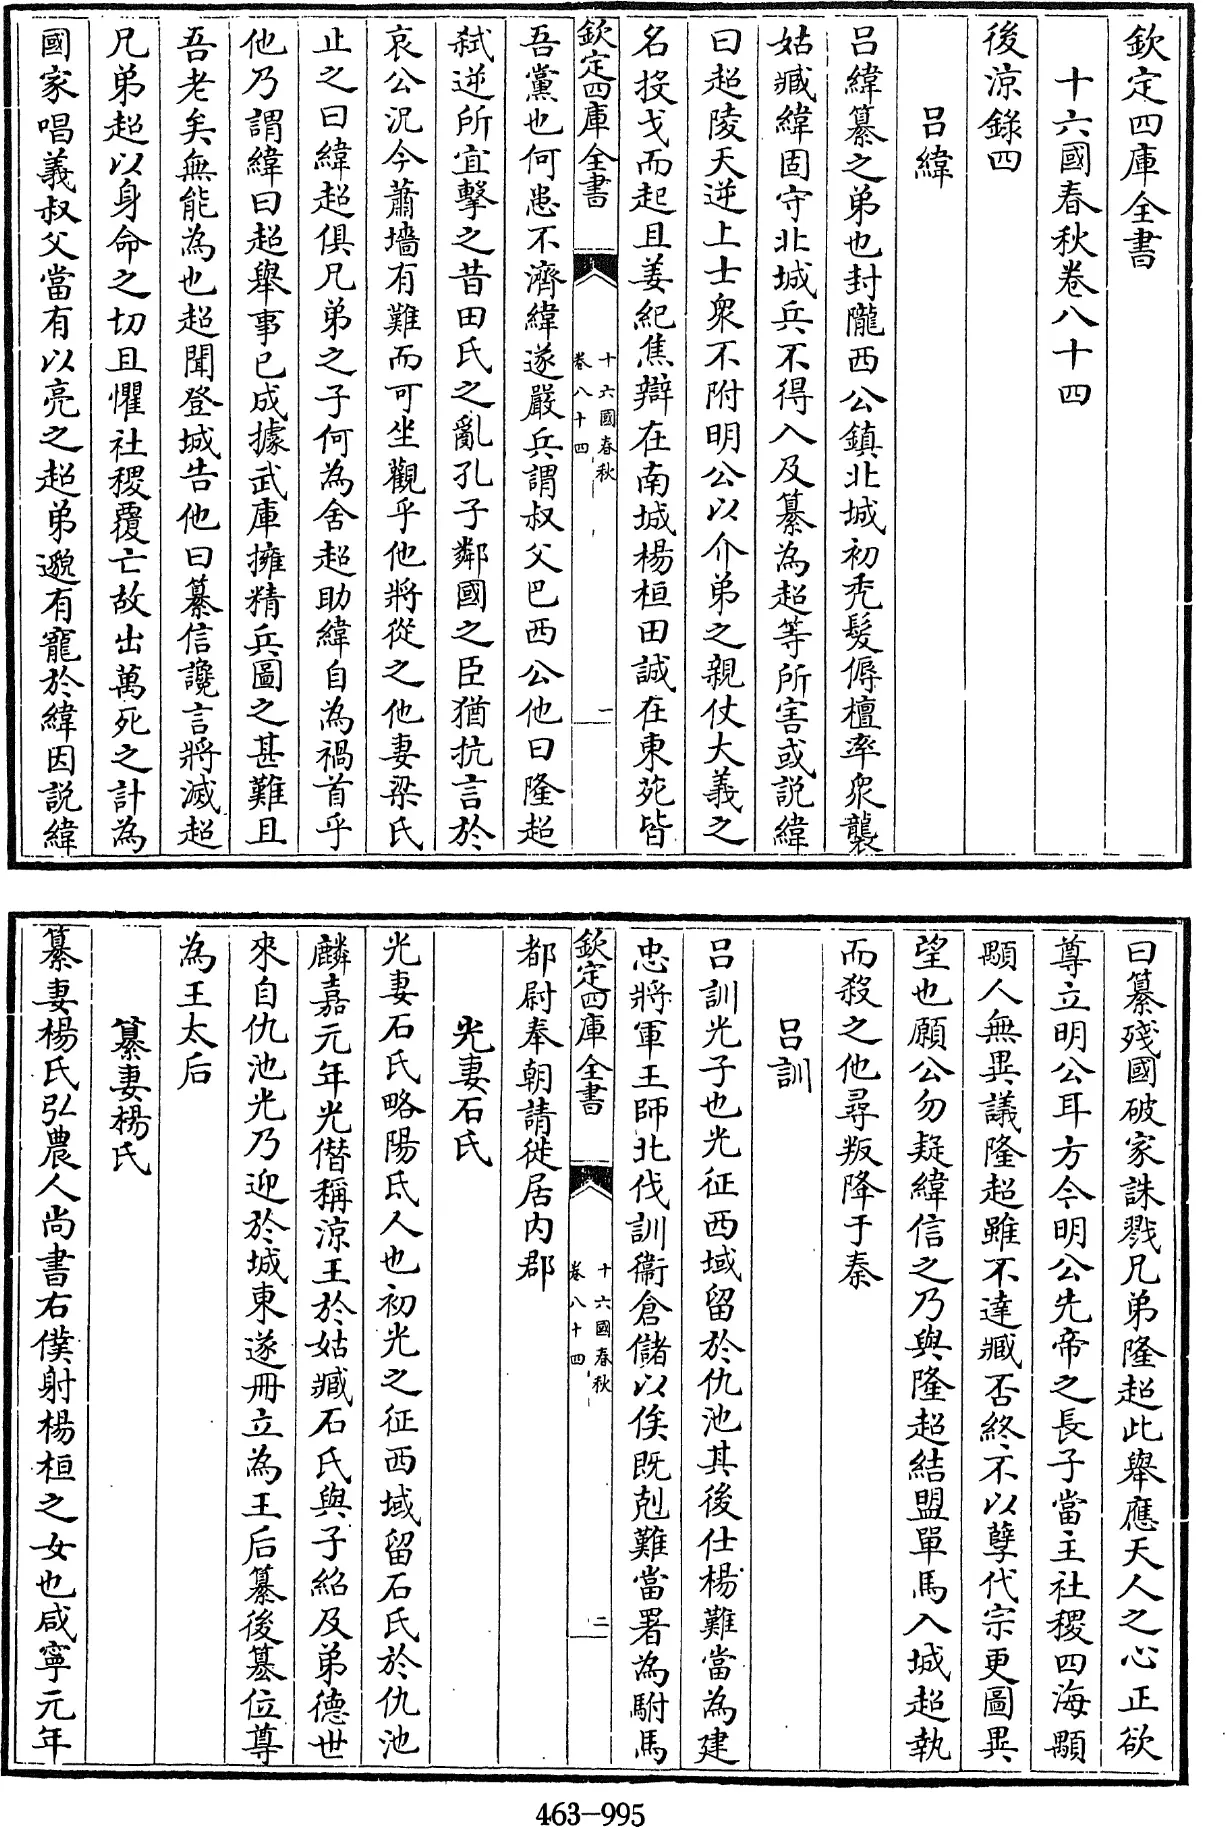 欽定四庫全書
十六國春秋卷八十四
後涼錄四
呂緯
呂緯纂之弟也封隴西公鎮北城初禿髮傉檀率衆襲
姑臧緯固守北城兵不得入及纂為超等所害或説緯
曰超陵天逆上士衆不附明公以介弟之親仗大義之
名投戈而起且姜紀焦辯在南城楊桓田誠在東苑皆
欽定四庫全書
十六國春秋
卷八十四
一
吾黨也何患不濟緯遂嚴兵謂叔父巴西公他曰隆超
弑逆所宜擊之昔田氏之亂孔子鄰國之臣猶抗言於
哀公況今蕭墻有難而可坐觀乎他將從之他妻梁氏
止之曰緯超俱兄弟之子何為舍超助緯自為禍首乎
他乃謂緯曰超舉事已成據武庫擁精兵圖之甚難且
吾老矣無能為也超聞登城告他曰纂信讒言將滅超
兄弟超以身命之切且懼社稷覆亡故出萬死之計為
國家唱義叔父當有以亮之超弟邈有寵於緯因説緯
曰纂殘國破家誅戮兄弟隆超此舉應天人之心正欲
尊立明公耳方今明公先帝之長子當主社稷四海顒
顒人無異議隆超雖不達臧否終不以孽代宗更圖異
望也願公勿疑緯信之乃與隆超結盟單馬入城超執
而殺之他尋叛降于秦
呂訓
呂訓光子也光征西域留於仇池其後仕楊難當為建
忠將軍王師北伐訓衞倉儲以俟既剋難當署為駙馬
欽定四庫全書
十六國春秋
卷八十四
二
都尉奉朝請徙居内郡
光妻石氏
光妻石氏略陽氐人也初光之征西域留石氏於仇池
麟嘉元年光僭稱涼王於姑臧石氏與子紹及弟德世
來自仇池光乃迎於城東遂冊立為王后纂後篡位尊
為王太后
纂妻楊氏
纂妻楊氏弘農人尚書右僕射楊桓之女也咸寧元年
463-995